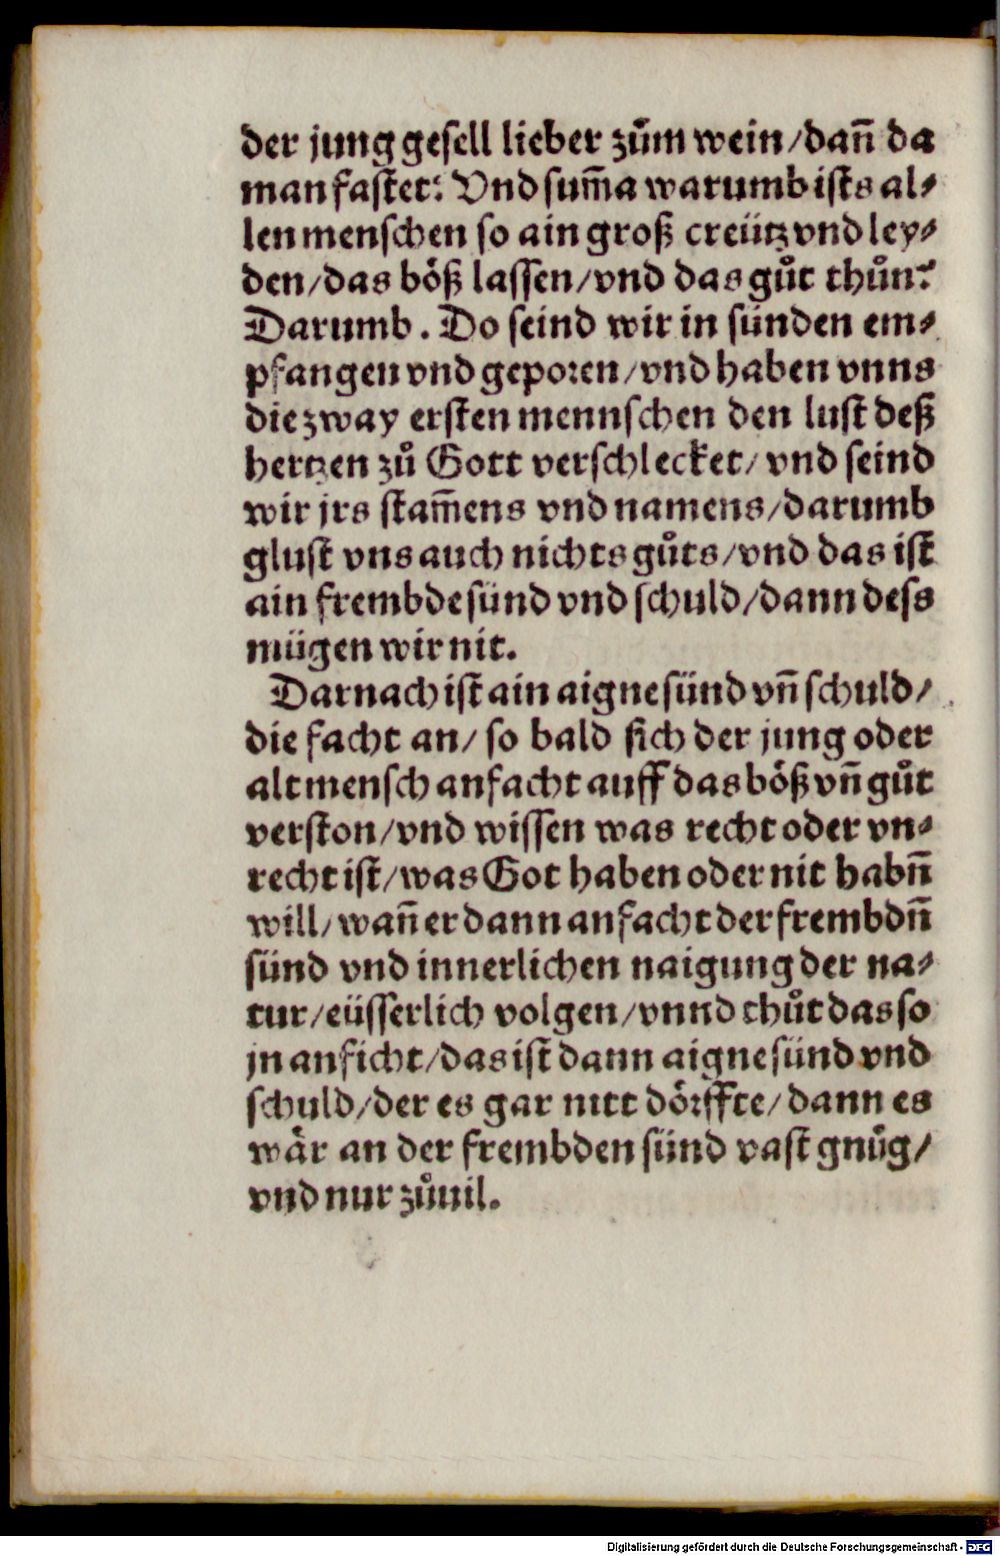 der jung gesell lieber zům wein/dañ da
man fastet? Vnd sum̃a warumb ists al⸗
len menschen so ain groß creütz vnd ley⸗
den/das böß lassen/vnd das gůt thůn?
Darumb. Do seind wir in sünden em⸗
pfangen vnd geporen/vnd haben vnns
die zway ersten mennschen den lust deß
hertzen zů Gott verschlecket/ vnd seind
wir jrs stam̃ens vnd namens/darumb
glust vns auch nichts gůts/vnd das ist
ain frembde sünd vnd schuld/dann dess
mügen wir nit.
Darnach ist ain aigne sünd vñ schuld/
die facht an/ so bald sich der jung oder
alt mensch anfacht auff das böß vñ gůt
verston/vnd wissen was recht oder vn⸗
recht ist/was Got haben oder nit habñ
will/wañ er dann anfacht der frembdñ
sünd vnd innerlichen naigung der na⸗
tur/eüsserlich volgen/vnnd thůt das so
jn anficht/das ist dann aigne sünd vnd
schuld/der es gar nitt dörffte/dann es
wår an der frembden sünd vast gnůg/
vnd nur zůuil.
Digitalisierung gefördert durch die Deutsche Forschungsgemeinschaft - DFG